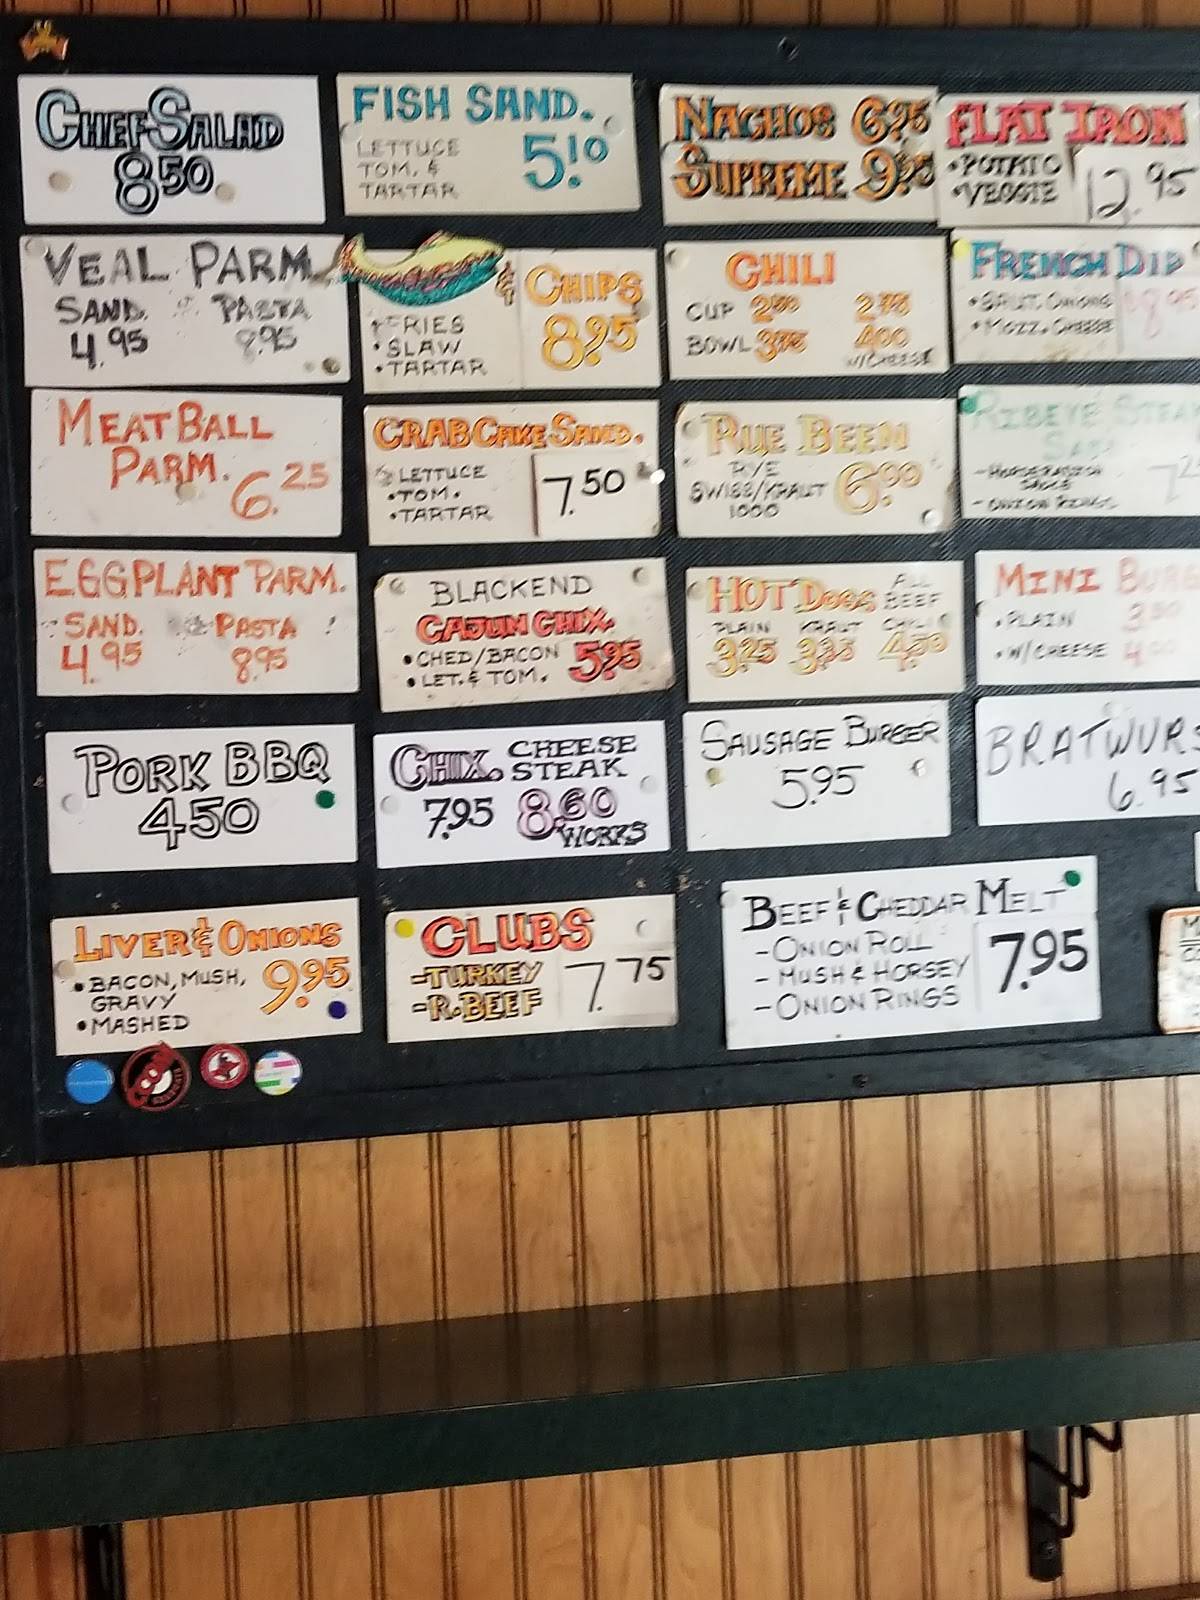 CHEF SALAD
8.50
FISH SAND.
LETTUCE
TOM. &
TARTAR
5.10
NACHOS 6.95
SUPREME 9.95
FLAT IRON
•POTATO
•VEGGIE
12.95
VEAL PARM
SAND. PASTA
4.95 8.95
& CHIPS
•FRIES
•SLAW
•TARTAR
8.95
CHILI
CUP 2.50 2.75
BOWL 3.75 4.00
W/CHEESE
FRENCH DIP
•MOZZ. CHEESE
8.95
MEAT BALL
PARM.
6.25
CRAB CAKE SAND.
•LETTUCE
•TOM.
•TARTAR
7.50
RUE BEEN
RYE
SWISS/KRAUT
1000
6.00
RIBEYE STEA
-HORSERADISH
SAUCE
-ONION RINGS
EGGPLANT PARM.
SAND. PASTA
4.95 8.95
BLACKEND
CAJUN CHIX
•CHED/BACON
•LET. & TOM.
5.95
HOT DOGS ALL BEEF
PLAIN KRAUT CHILI
3.25 3.35 4.50
MINI BUR
•PLAIN
•W/CHEESE
PORK BBQ
4.50
CHIX. CHEESE
STEAK
7.95 8.60
WORKS
SAUSAGE BURGER
5.95
BRATWURS
6.95
LIVER & ONIONS
•BACON, MUSH,
GRAVY
•MASHED
9.95
CLUBS
-TURKEY
-R.BEEF
7.75
BEEF & CHEDDAR MELT
-ONION ROLL
-MUSH & HORSEY
-ONION RINGS
7.95